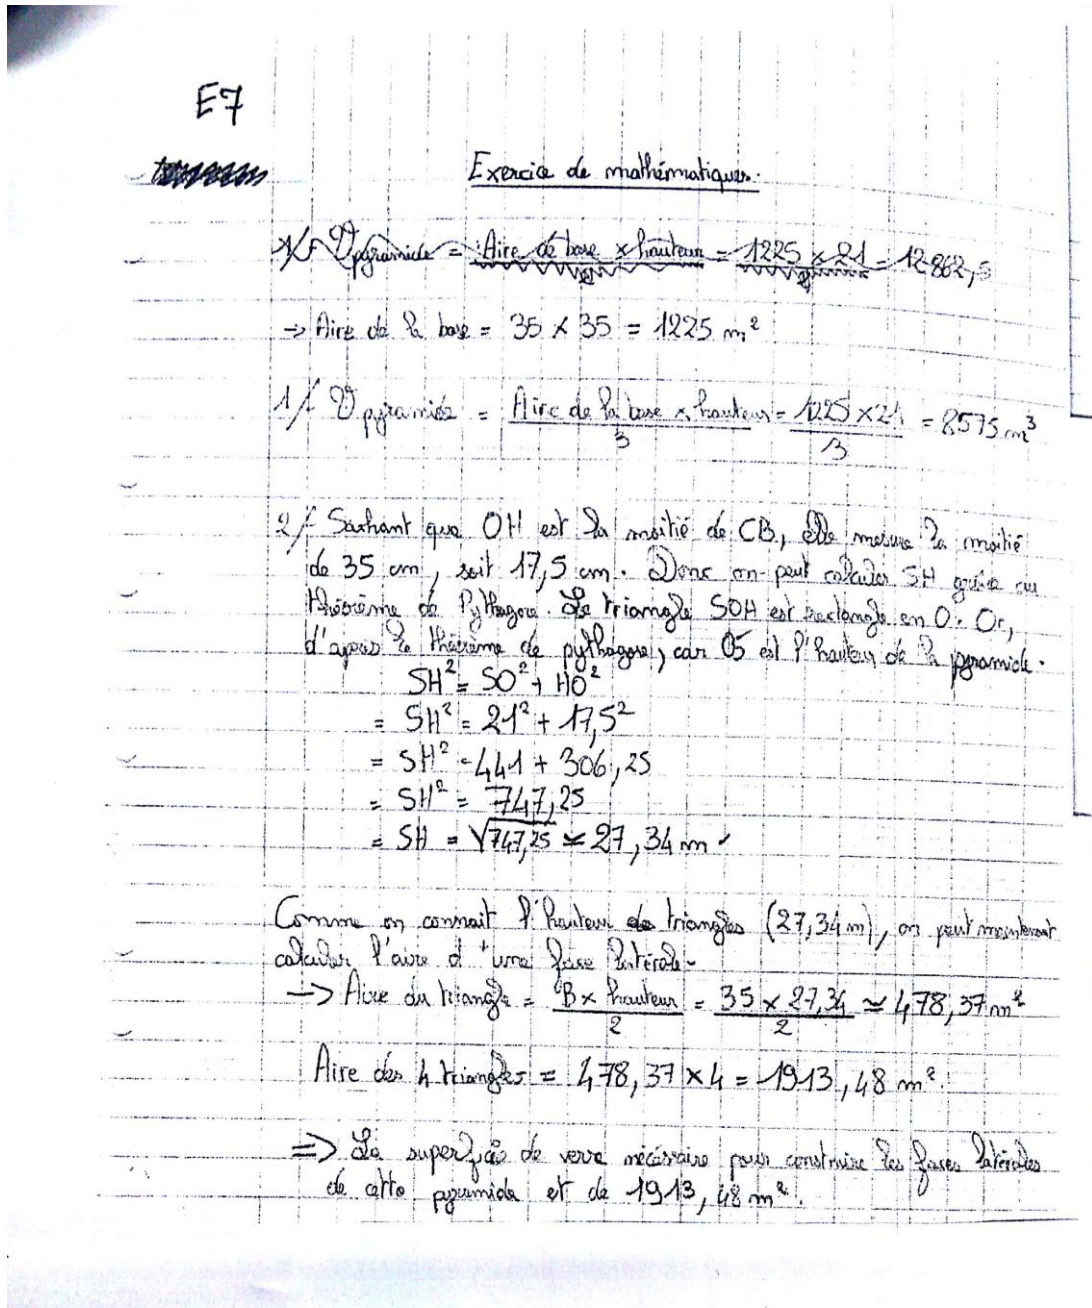 E7
Exercice de mathématiques.
1/- V pyramide = Aire de base x hauteur / 2 = 1225 x 21 / 2 = 12862,5
-> Aire de la base = 35 x 35 = 1225 m²
1/- V pyramide = Aire de la base x hauteur / 3 = 1225 x 21 / 3 = 8575 m³
2/- Sachant que OH est la moitié de CB, elle mesure la moitié
de 35 cm, soit 17,5 cm. Donc on peut calculer SH grâce au
théorème de Pythagore. Le triangle SOH est rectangle en O. Or,
d'après le théorème de pythagore, car OS est l'hauteur de la pyramide.
SH² = SO² + HO²
= SH² = 21² + 17,5²
= SH² = 441 + 306,25
= SH² = 747,25
= SH = √747,25 ≃ 27,34 m
Comme on connait l'hauteur des triangles (27,34 m), on peut maintenant
calculer l'aire d'une face latérale.
--> Aire du triangle = B x hauteur / 2 = 35 x 27,34 / 2 ≃ 478,37 m²
Aire des 4 triangles = 478,37 x 4 = 1913,48 m².
=> La superficie de verre nécéssaire pour construire les faces latérales
de cette pyramide et de 1913,48 m².